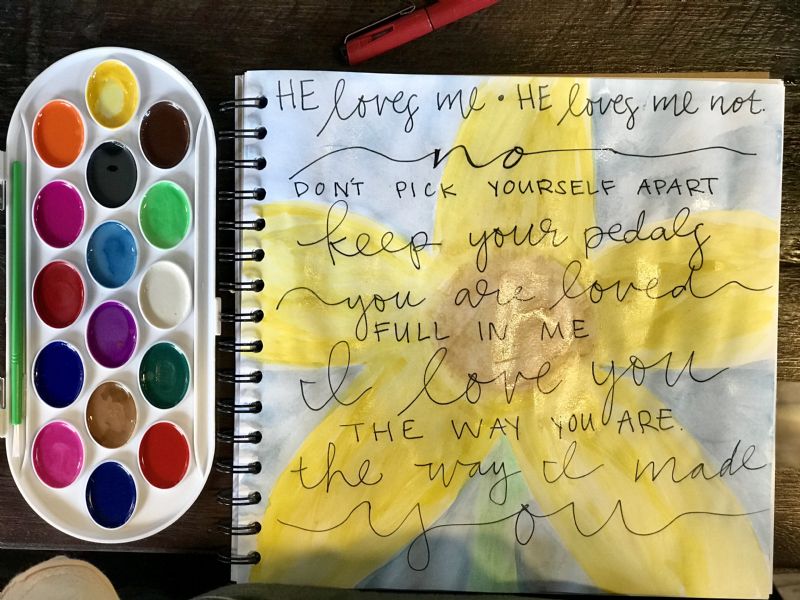 HE loves me • HE loves me not.
no
DON'T PICK YOURSELF APART
keep your pedals
you are loved
FULL IN ME
I love you
THE WAY YOU ARE.
the way I made
you